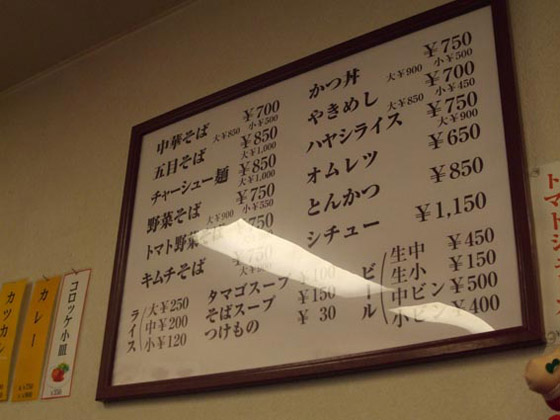 中華そば ¥700
大¥850 小¥500
五目そば ¥850
大¥1,000
チャーシュー麺 ¥850
大¥1,000
野菜そば ¥750
大¥900 小¥550
トマト野菜そば ¥750
キムチそば ¥750
ライス
大¥250
中¥200
小¥120
タマゴスープ ¥100
そばスープ ¥150
つけもの ¥ 30
かつ丼 ¥750
大¥900 小¥500
やきめし ¥700
大¥850 小¥450
ハヤシライス ¥750
大¥900
オムレツ ¥650
とんかつ ¥850
シチュー ¥1,150
ビール
生中 ¥450
生小 ¥150
中ビン ¥500
小ビン ¥400
コロッケ小皿
カレー